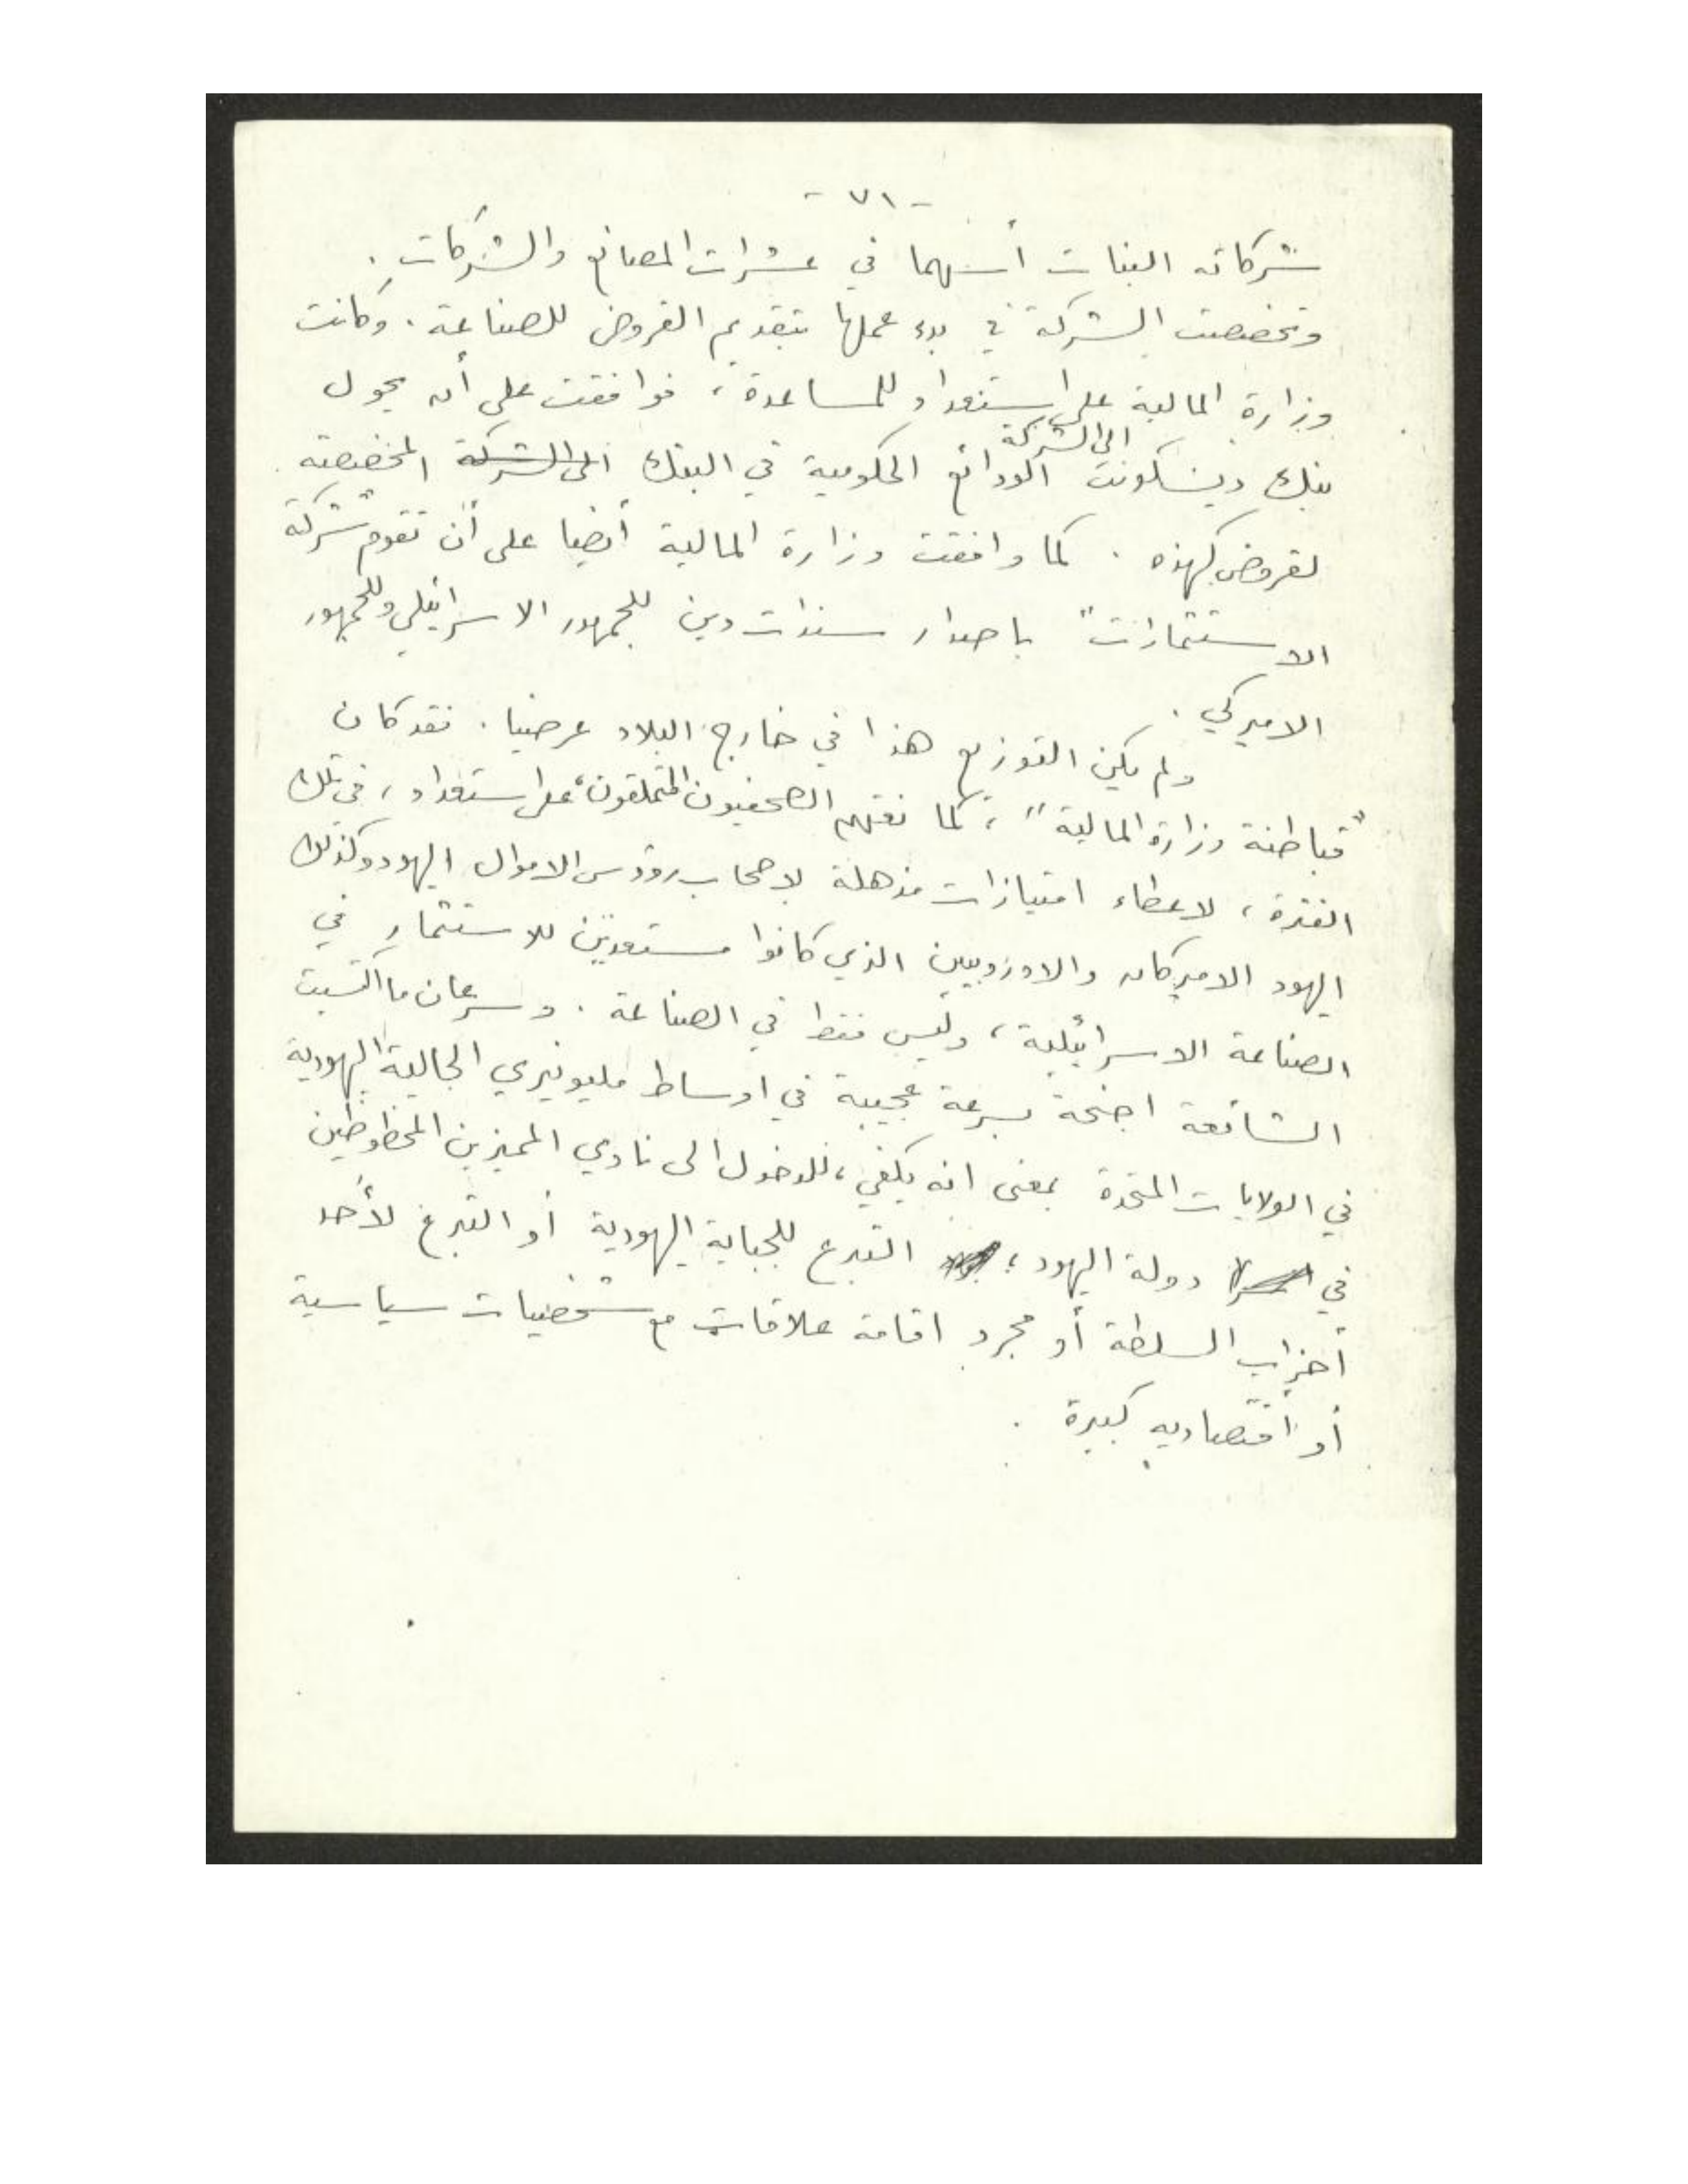 - ٧١ -
شركاته البنات أسهما في عشرات المصانع والشركات .
وتخصصت الشركة في بدء عملها بتقديم القروض للصناعة . وكانت
وزارة المالية على استعداد للمساعدة ، فوافقت على أن يحول
الى الشركة
بنك ديسكونت الودائع الحكومية في البنك الى الشركة المخصصة
لقروض كهذه . كما وافقت وزارة المالية أيضا على أن تقوم "شركة
الاستثمارات" باصدار سندات دين للجمهور الاسرائيلي وللجمهور
الاميركي .
ولم يكن التوزيع هذا في خارج البلاد عرضيا . فقد كان
"قباطنة وزارة المالية" ، كما نعتهم الصحفيون المتملقون ، على استعداد ، في تلك
الفترة ، لاعطاء امتيازات مذهلة لاصحاب رؤوس الاموال اليهود وكذلك
اليهود الاميركان والاوروبيين الذي كانوا مستعدين للاستثمار في
الصناعة الاسرائيلية ، وليس فقط في الصناعة . وسرعان ما اكتسبت
الشائعة اجنحة بسرعة عجيبة في اوساط مليونيري الجالية اليهودية
في الولايات المتحدة بمعنى انه يكفي ، للدخول الى نادي المميزين المحظوظين
في دولة اليهود ؛ التبرع للجباية اليهودية أو التبرع لأحد
أحزاب السلطة أو مجرد اقامة علاقات مع شخصيات سياسية
أو اقتصادية كبيرة .